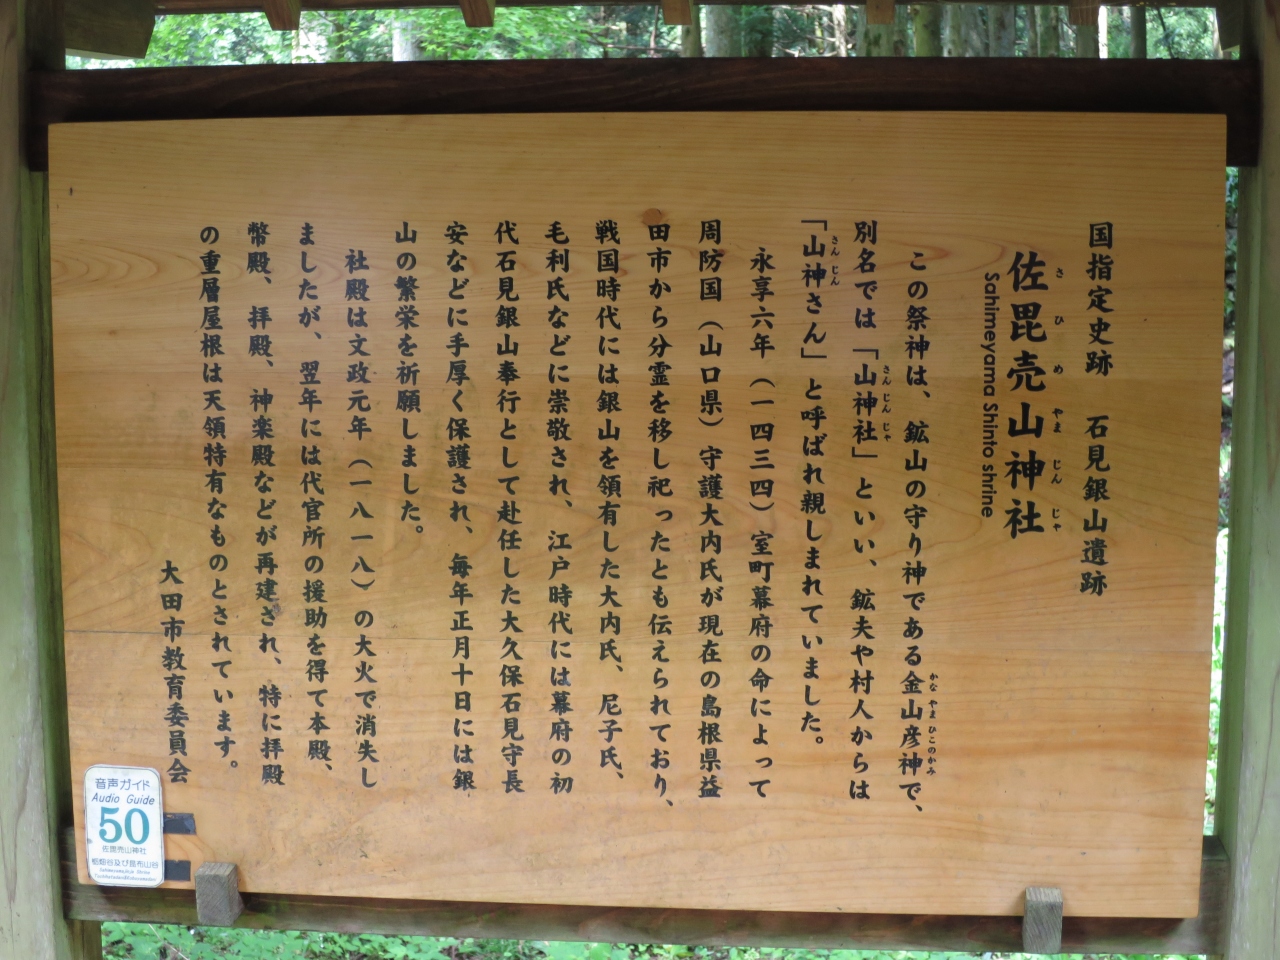 国指定史跡　石見銀山遺跡
佐毘売山神社
さひめやまじんじゃ
Sahimeyama Shinto shrine
この祭神は、鉱山の守り神である金山彦神で、
かなやまひこのかみ
別名では「山神社」といい、鉱夫や村人からは
さんじんじゃ
「山神さん」と呼ばれ親しまれていました。
さんじん
永享六年（一四三四）室町幕府の命によって
周防国（山口県）守護大内氏が現在の島根県益
田市から分霊を移し祀ったとも伝えられており、
戦国時代には銀山を領有した大内氏、尼子氏、
毛利氏などに崇敬され、江戸時代には幕府の初
代石見銀山奉行として赴任した大久保石見守長
安などに手厚く保護され、毎年正月十日には銀
山の繁栄を祈願しました。
社殿は文政元年（一八一八）の大火で消失し
ましたが、翌年には代官所の援助を得て本殿、
幣殿、拝殿、神楽殿などが再建され、特に拝殿
の重層屋根は天領特有なものとされています。
大田市教育委員会
音声ガイド
Audio Guide
50
佐毘売山神社